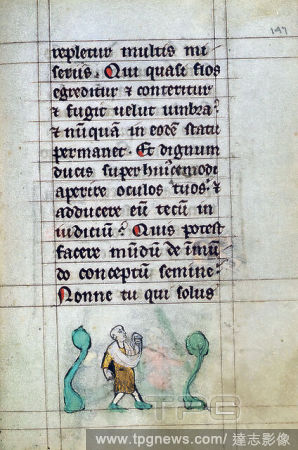 147
repletur multis mi
seriis. Qui quasi flos
egreditur & conteritur
& fugit velut umbra:
& nũquã in eodẽ statu
permanet. Et dignum
ducis super huiꝰcemodi
aperire oculos tuos: &
adducere eũ tecũ in
iudiciũ: Quis potest
facere mũdũ de ĩmũ
do conceptũ semine:
Nonne tu qui solus
TPG
www.tpgnews.com/達志影像